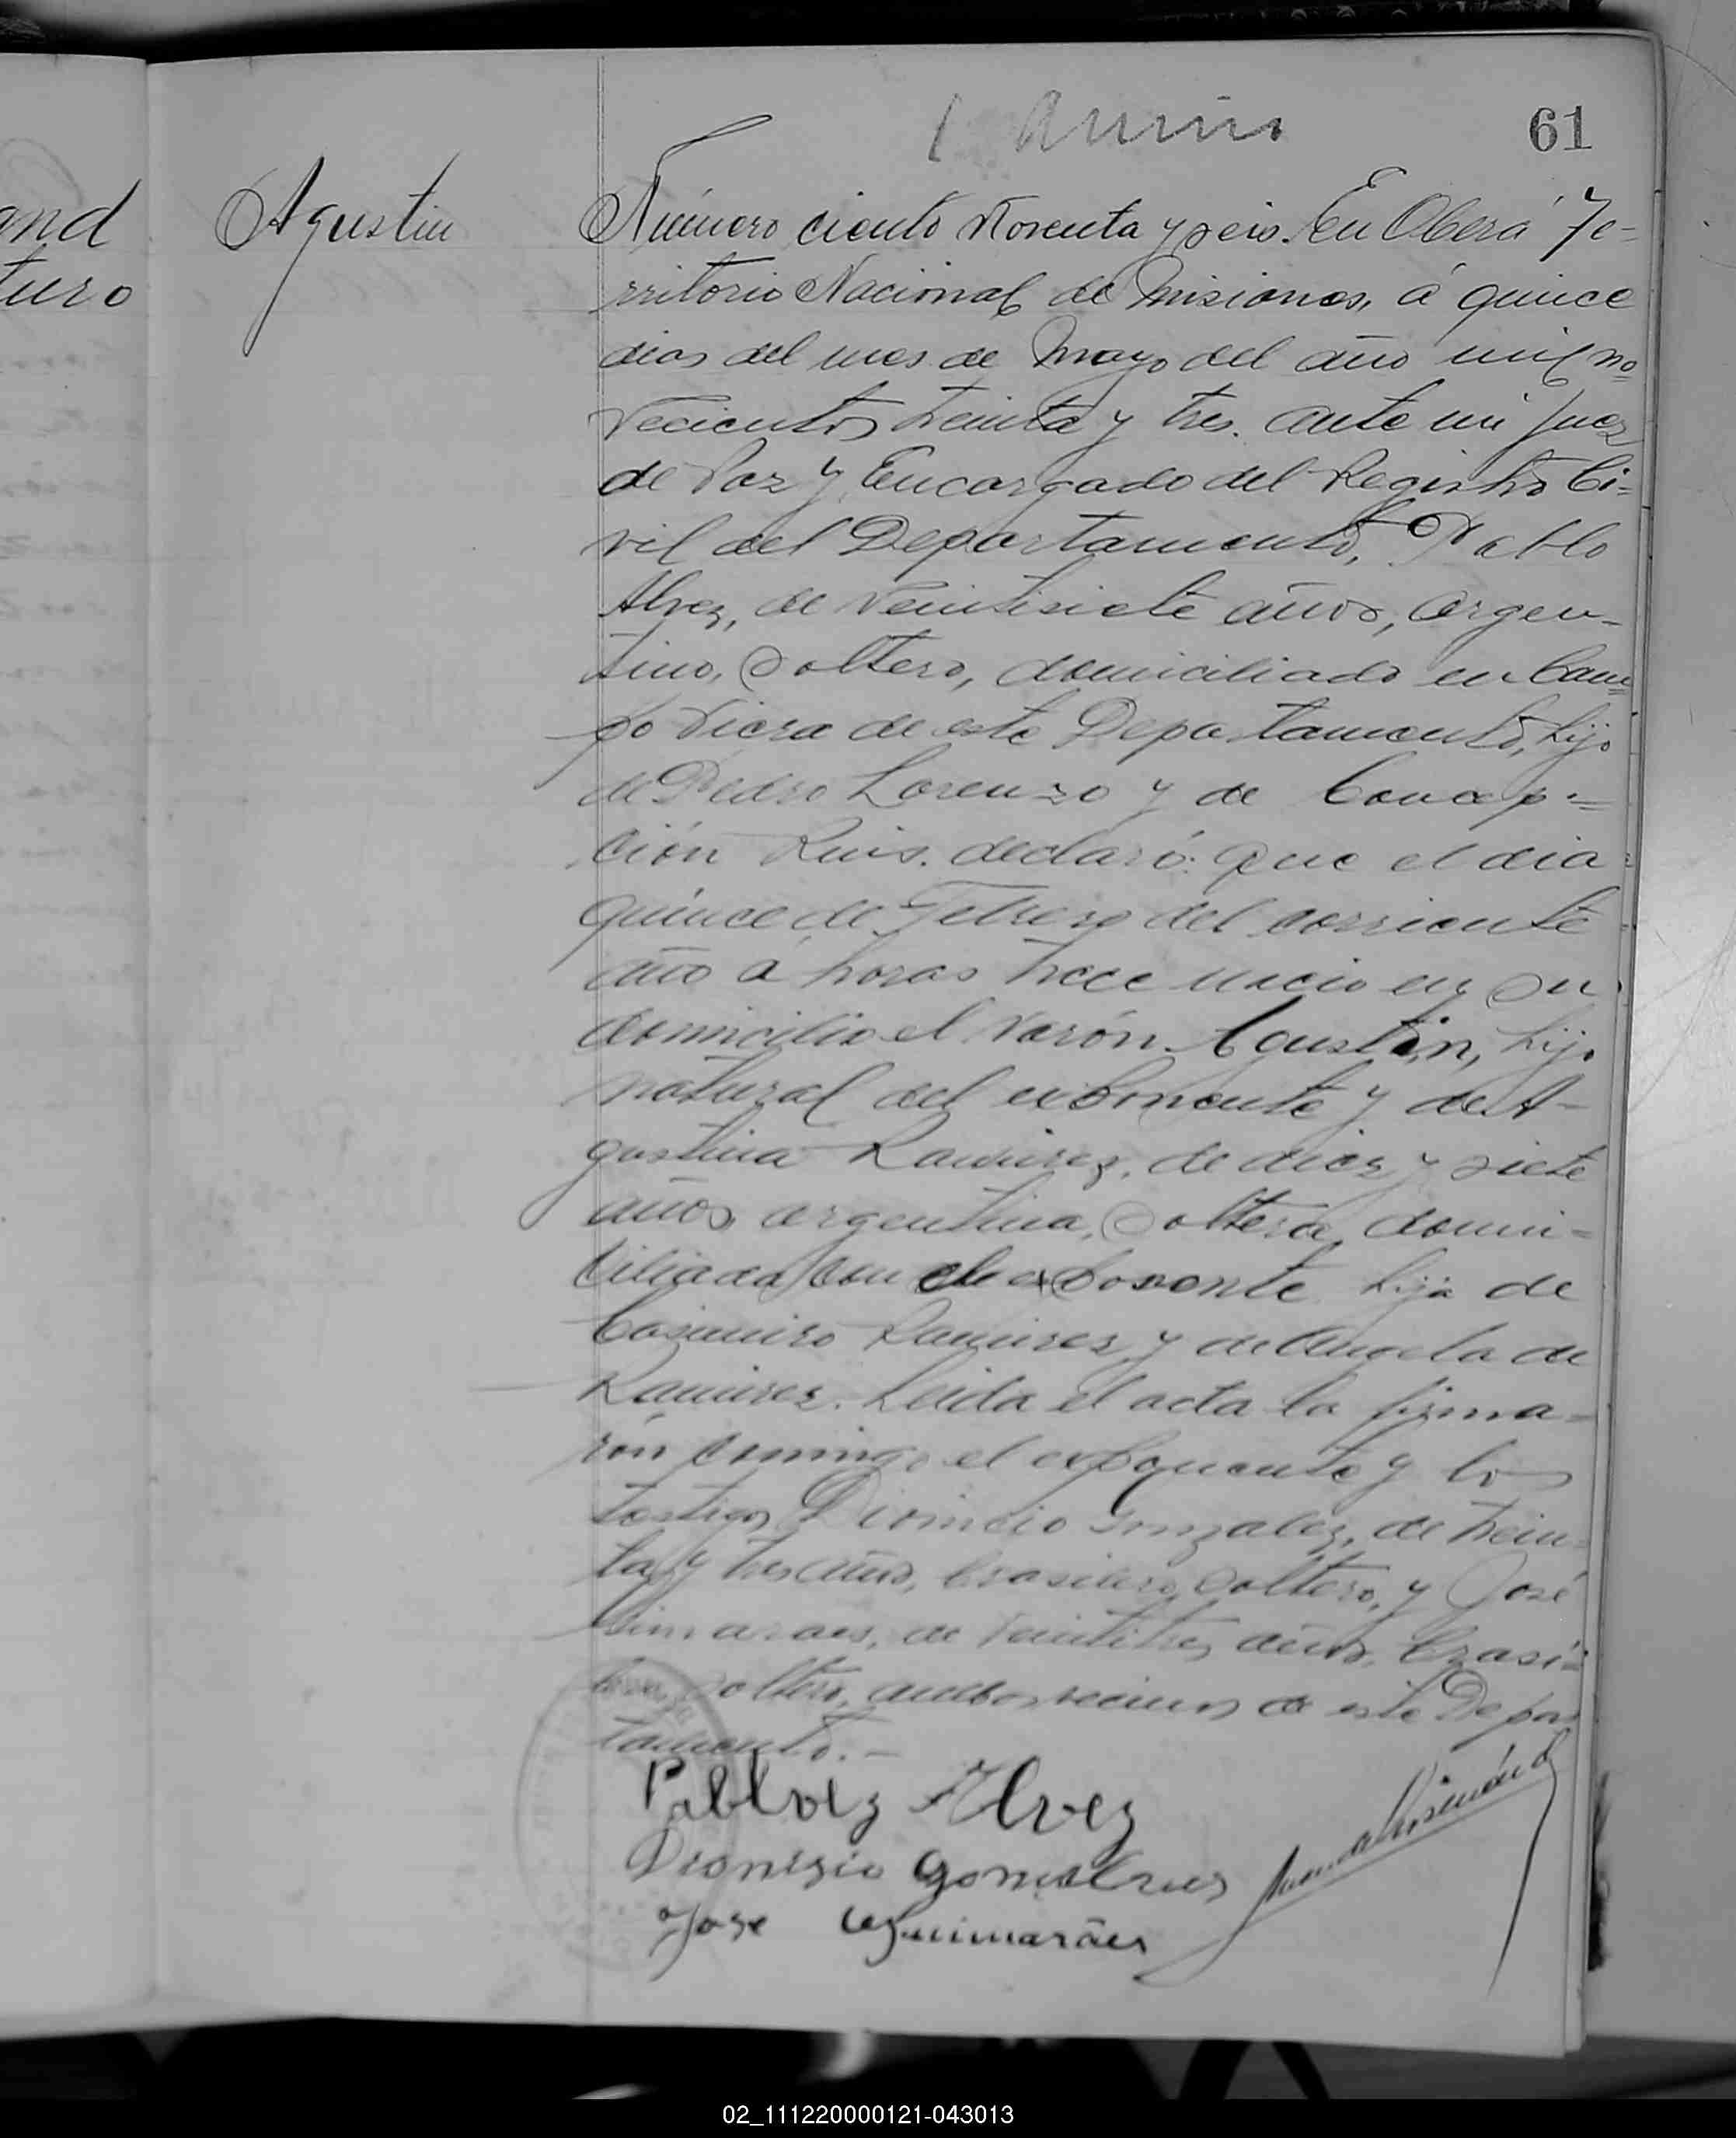 61
Agustin
Número ciento Noventa y seis. En Oberá Te-
rritorio Nacional de Misiones, á quince
dias del mes de Mayo del año mil no
vecientos treinta y tres. ante mi Juez
de Paz y Encargado del Registro Ci-
vil del Departamento, Pablo
Alvez, de veintisiete años, argen-
tino, Soltero, domiciliado en Cam
po Viera de este Departamento, hijo
de Pedro Lorenzo y de Concep-
ción Luis. declaró: que el dia
quince de Febrero del corriente
año á horas trece nacio en su
domicilio el Varón Agustin, hijo
natural del exponente y de A-
gustina Ramirez, de diez y siete
años, argentina, Soltera, domi-
ciliada con el exponente hija de
Casimiro Ramirez y de Angela de
Ramirez. Leida el acta la firma-
rón conmigo el exponente y los
testigos Dionicio Gonzalez, de trein
ta y tres años, brasilero, Soltero, y José
Gimaraes, de veintitres años, brasi-
lero, soltero, ambos vecinos de este Depar
tamento.-
Alvez
Dionisio
Jose Guimarães
and
turo
02_111220000121-043013